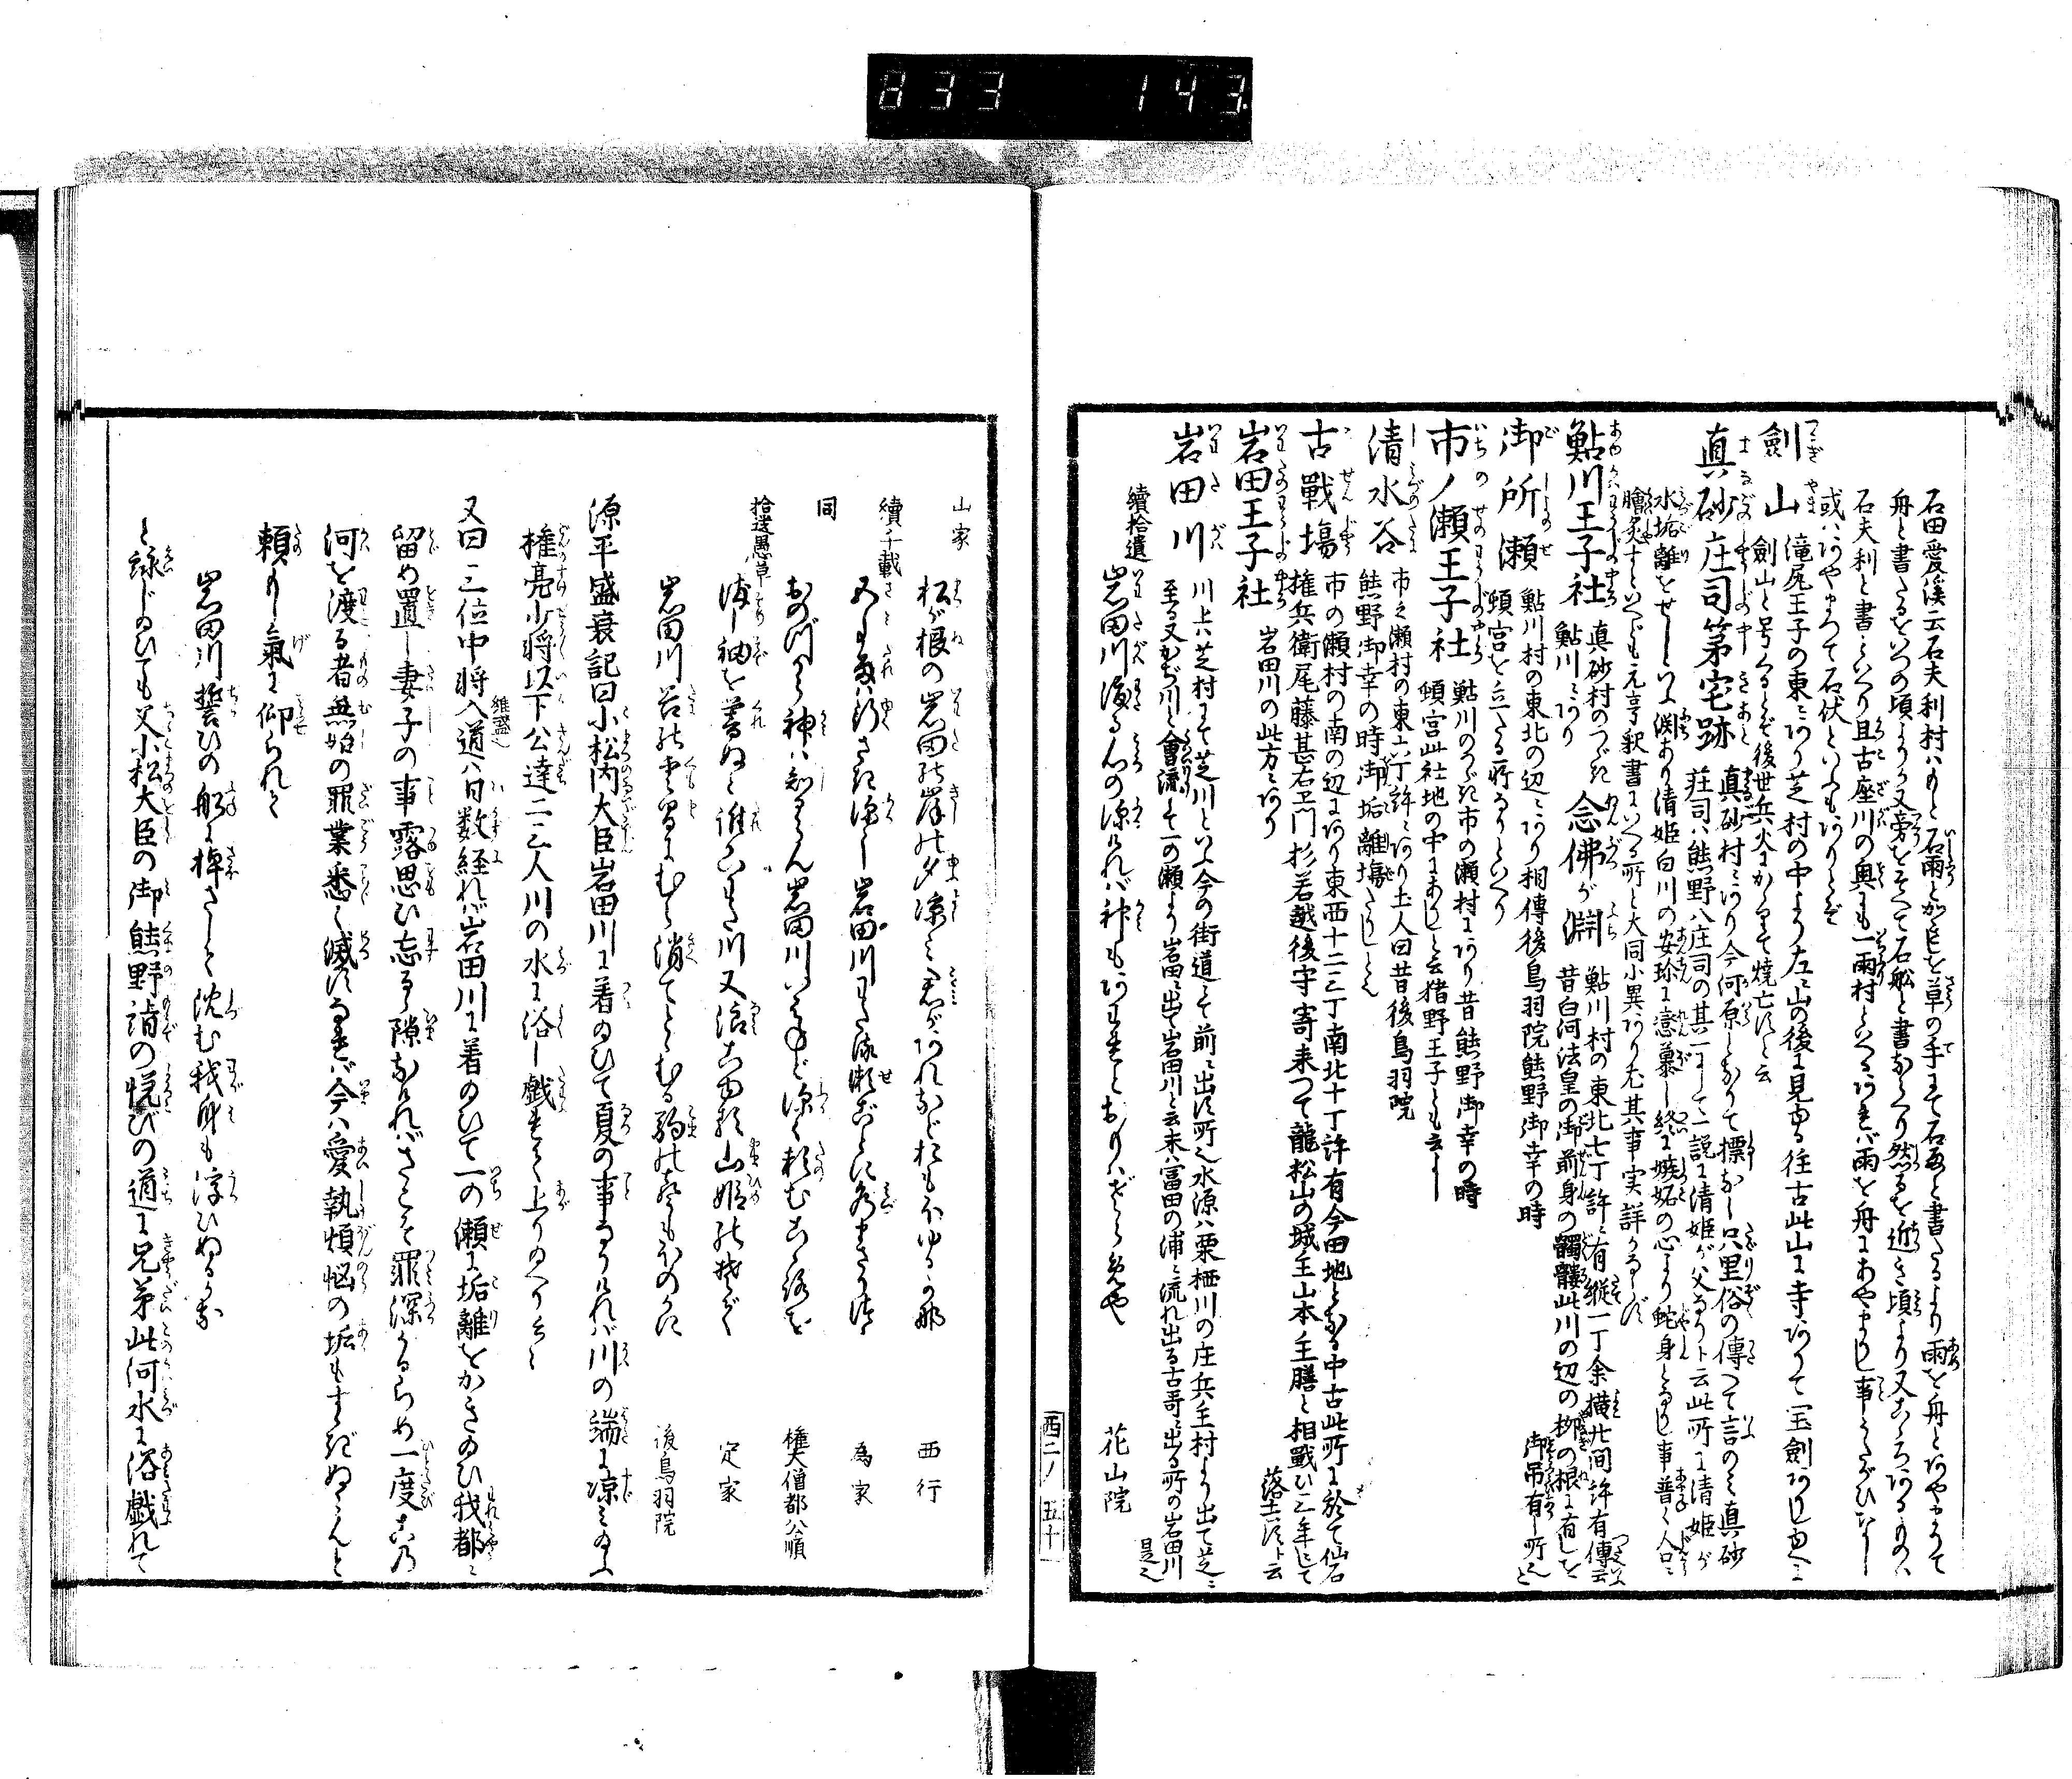 833 143
石田愛渓云石夫利村ハもと石雨とか岩を草の手にて石雨と書たるより雨を舟とあやまりて
舟と書たるをいつの頃よりか又旁をそへて石船と書なへり然るを近き頃より又こゝろあるものハ
石夫利と書といへり且古座川の奥にも一雨村といへるあれバ雨を舟にあやまりし事うたがひなし
或ハあやまつて石伏といふもありとぞ
劍山 滝尻王子の東ニあり芝村の中より左ニ山の後に見ゆる往古此山に寺ありて宝劍ありしゆへニ
劍山と号くるとぞ後世兵火にかゝりて焼亡すと云
真砂庄司第宅跡 真砂村ニあり今河原となりて標なし只里俗の傳へて言のミ真砂
荘司ハ熊野八庄司の其一にして一説に清姫ガ父なりト云此所に清姫が
水垢離をせしといふ渕あり清姫白川の安珍に恋慕し終に嫉妬の心より蛇身となりし事普く人口ニ
膾炙すといへども元亨釈書にいへる所と大同小異あり尤其事実詳かならず
鮎川王子社 真砂村のつゞき鮎川ニあり
念佛が渕 鮎川村の東北七丁許ニ有縦一丁余横廿間許有傳云
昔白河法皇の御前身の髑髏此川の辺の柳の根に有しを
御吊有し所也と
御所瀬 鮎川村の東北の辺ニあり相傳後鳥羽院熊野御幸の時
頓宮を立たる所なりといへり
市ノ瀬王子社 鮎川のつゞき市の瀬村にあり昔熊野御幸の時
頓宮此社地の中にありしと云猪野王子とも云し
清水谷 市之瀬村の東六丁許ニあり土人曰昔後鳥羽院
熊野御幸の時御垢離場たりしと
古戰場 市の瀬村の南の辺にあり東西十二三丁南北十丁許有今田地となる中古此所に於て仙石
権兵衛尾藤甚右エ門杉若越後守寄来つて龍松山の城主山本主膳と相戰ひ三年にして
落去すト云
岩田王子社 岩田川の此方ニあり
岩田川 川上ハ芝村にて芝川といふ今の街道にて前ニ出す所也水源ハ栗栖川の庄兵主村より出て芝ニ
至る又かぢ川と會流して一の瀬より岩田ニ出て岩田川と云末ハ富田の浦ニ流れ出る古哥ニ出る所の岩田川
是也
續拾遺 岩田川渡る心の深けれバ神もあはれとおもハざらめや 花山院
西二ノ五十
山家 松が根の岩田の岸の夕凉ミ君があれなとおもほゆるかな 西行
續千載 五月雨ハ行さき深し岩田川わたる瀬ごとに水まさりつゝ 為家
同 おのづから神ハ知らん岩田川いかほど深く頼むこゝろを 権大僧都公順
拾遺愚草 染し袖を暮ぬと誰かいはた川又浪こゆる山姫の
定家
岩田川谷の雲間にむら消てとゞむる駒の聲もほのかに 後鳥羽院
源平盛衰記曰小松内大臣岩田川に着給ひて夏の事なりけれバ川の端に凉ミ給ふ
権亮少将以下公達二三人川の水に浴し戯れて上り給へり云々
又曰三位中将入道維盛也ハ日数経れバ岩田川に着給ひて一の瀬に垢離をかき給ひ我都ニ
留め置し妻子の事露思ひ忘るゝ隙なけれバさこそ罪深かるらめ一度此の
河を渡る者無始の罪業悉く滅すなれバ今ハ愛執煩悩の垢もすゝぎぬらんと
頼もし気に仰られて
岩田川誓ひの船に棹さして沈む我身も浮ひぬるかな
と詠じ給ひても父小松大臣の御熊野詣の悦びの道に兄弟此河水に浴戯れて